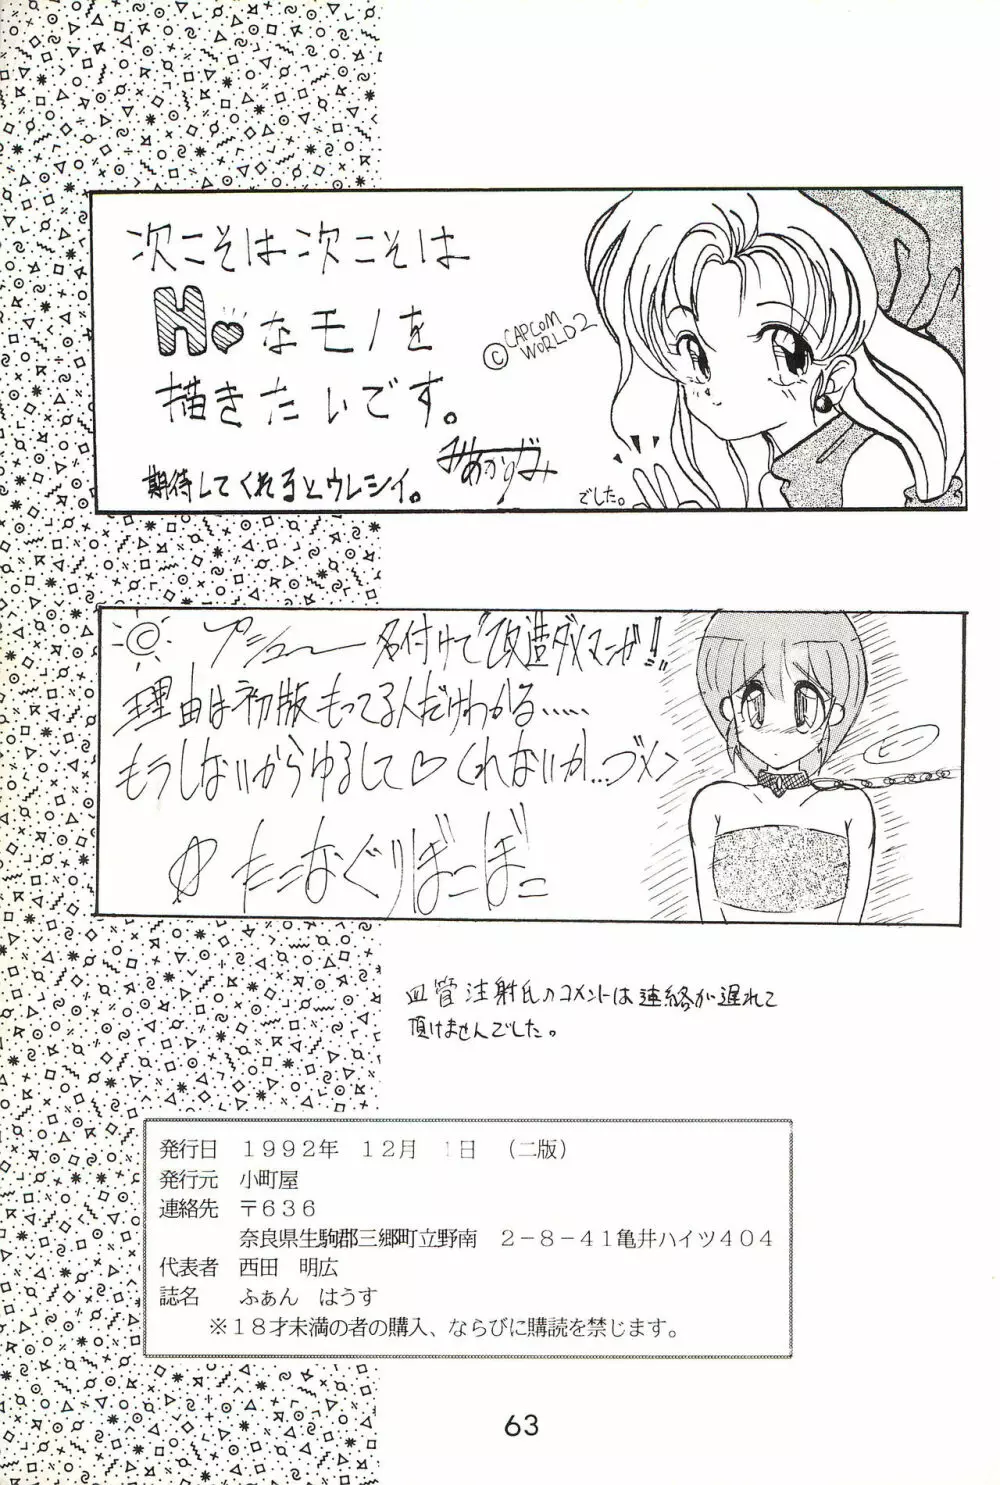 次こそは次こそは
H♥なモノを
描きたいです。
期待してくれるとウレシイ。
みあかりがみ
でした。
© CAPCOM
WORLD2
プシュー 名付けて“改造ダメマンガ!!”
理由は初版もってる人だけわかる……
もうしないからゆるして♡くれないか…ゴメン
たこなぐりぼこぼこ
血管注射氏のコメントは連絡が遅れて
頂けませんでした。
発行日 1992年 12月 1日 (二版)
発行元 小町屋
連絡先 〒636
奈良県生駒郡三郷町立野南 2-8-41亀井ハイツ404
代表者 西田 明広
誌名 ふぁん はうす
※18才未満の者の購入、ならびに購読を禁じます。
63